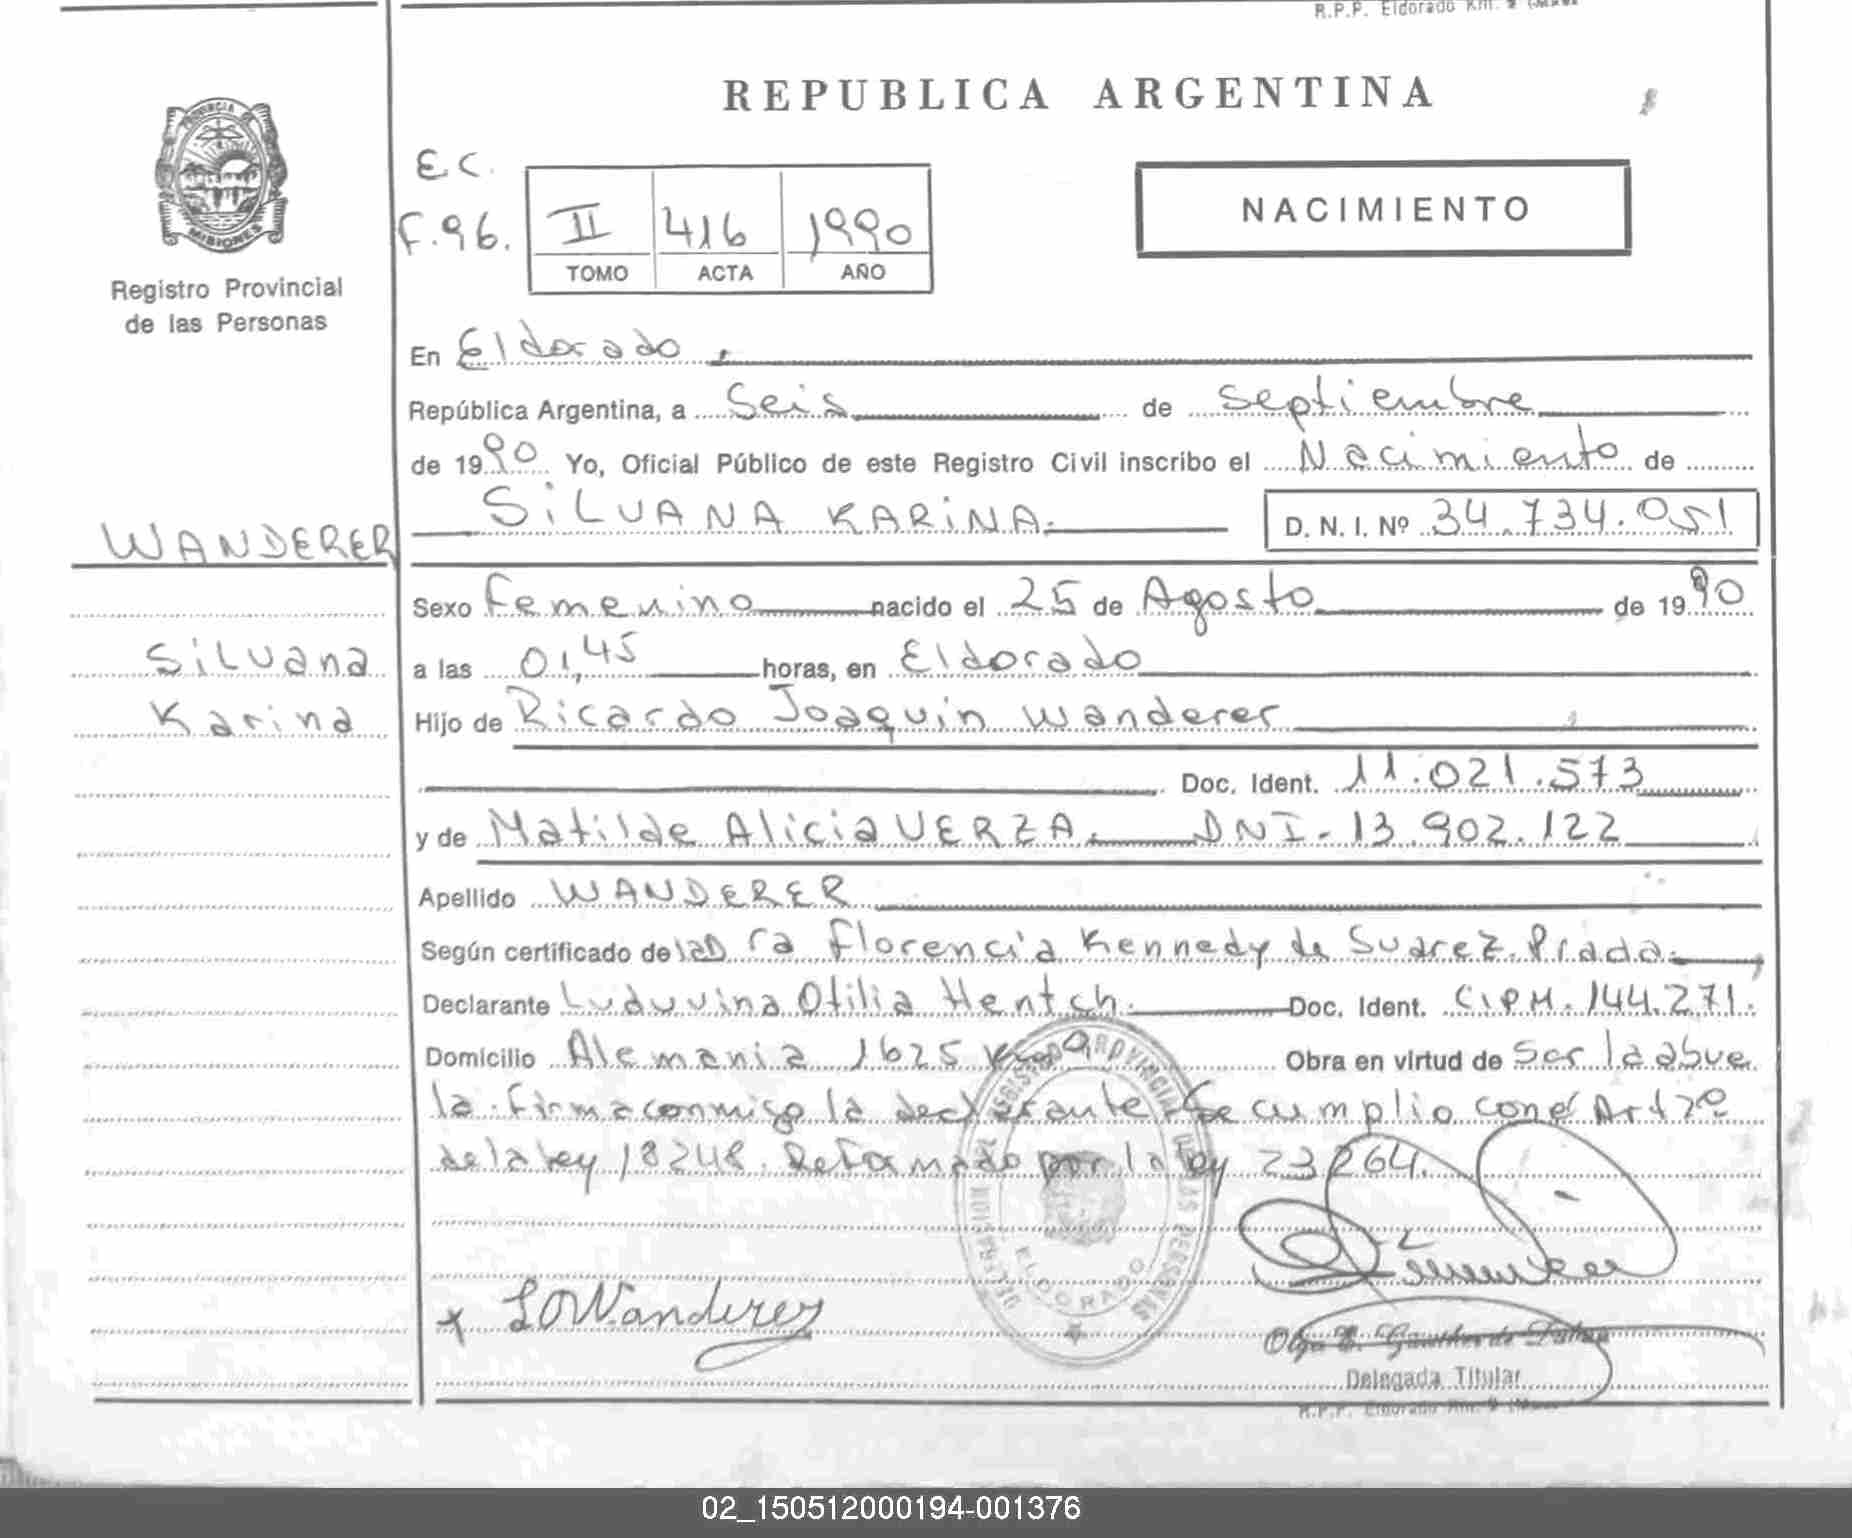 R.P.P. Eldorado Km. 9
REPUBLICA ARGENTINA
PROVINCIA DE
MISIONES
Registro Provincial
de las Personas
E.C.
F.96.
II 416 1990
TOMO ACTA AÑO
NACIMIENTO
En Eldorado.
República Argentina, a Seis de septiembre
de 1990 Yo, Oficial Público de este Registro Civil inscribo el Nacimiento de
SILVANA KARINA. D. N. I. Nº 34.734.051
WANDERER
Silvana
Karina
Sexo Femenino nacido el 25 de Agosto de 1990
a las 01,45 horas, en Eldorado
Hijo de Ricardo Joaquin Wanderer
Doc. Ident. 11.021.573
y de Matilde Alicia VERZA. DNI-13.902.122
Apellido WANDERER
Según certificado de la Dra Florencia Kennedy de Suarez Prada.
Declarante Luduvina Otilia Hentch. Doc. Ident. C.I.P.M. 144.271.
Domicilio Alemania 1625 Km 9 Obra en virtud de Ser la abue
la. Firma conmigo la declarante. Se cumplio con el Art 2º
de la ley 18248. Reformado por la ley 23264.
DELEGACION DEL REGISTRO PROVINCIAL DE LAS PERSONAS
ELDORADO
x LOWanderer
Olga E. Gauthier de
Delegada Titular
R.P.P. Eldorado Km. 9
02_150512000194-001376